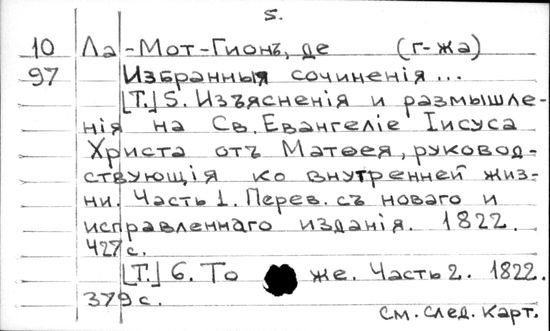 5.
10 Ла-Мот-Гионъ, де (г-жа)
97 Избранныя сочиненія...
[Т.] 5. Изъясненія и размышле-
нія на Св. Евангеліе Іисуса
Христа отъ Матѳея, руковод-
ствующія ко внутренней жиз-
ни. Часть 1. Перев. съ новаго и
исправленнаго изданія. 1822.
427 с.
[Т.] 6. То же. Часть 2. 1822.
379 с.
См. след. карт.